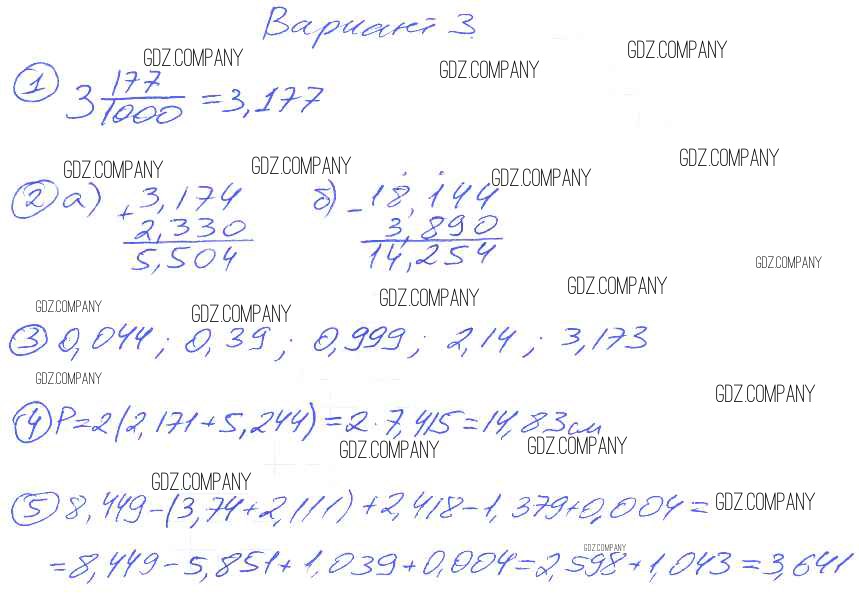 Вариант 3.
GDZ.COMPANY GDZ.COMPANY GDZ.COMPANY
① 3 177/1000 = 3,177
GDZ.COMPANY GDZ.COMPANY GDZ.COMPANY GDZ.COMPANY
② а) + 3,174 б) - 18,144
2,330 3,890
5,504 14,254
GDZ.COMPANY
GDZ.COMPANY GDZ.COMPANY GDZ.COMPANY GDZ.COMPANY
③ 0,044; 0,39; 0,999; 2,14; 3,173
GDZ.COMPANY GDZ.COMPANY
④ P=2(2,171+5,244)=2·7,415=14,83см
GDZ.COMPANY GDZ.COMPANY
GDZ.COMPANY GDZ.COMPANY
⑤ 8,449-(3,74+2,111)+2,418-1,379+0,004=
GDZ.COMPANY
=8,449-5,851+1,039+0,004=2,598+1,043=3,641